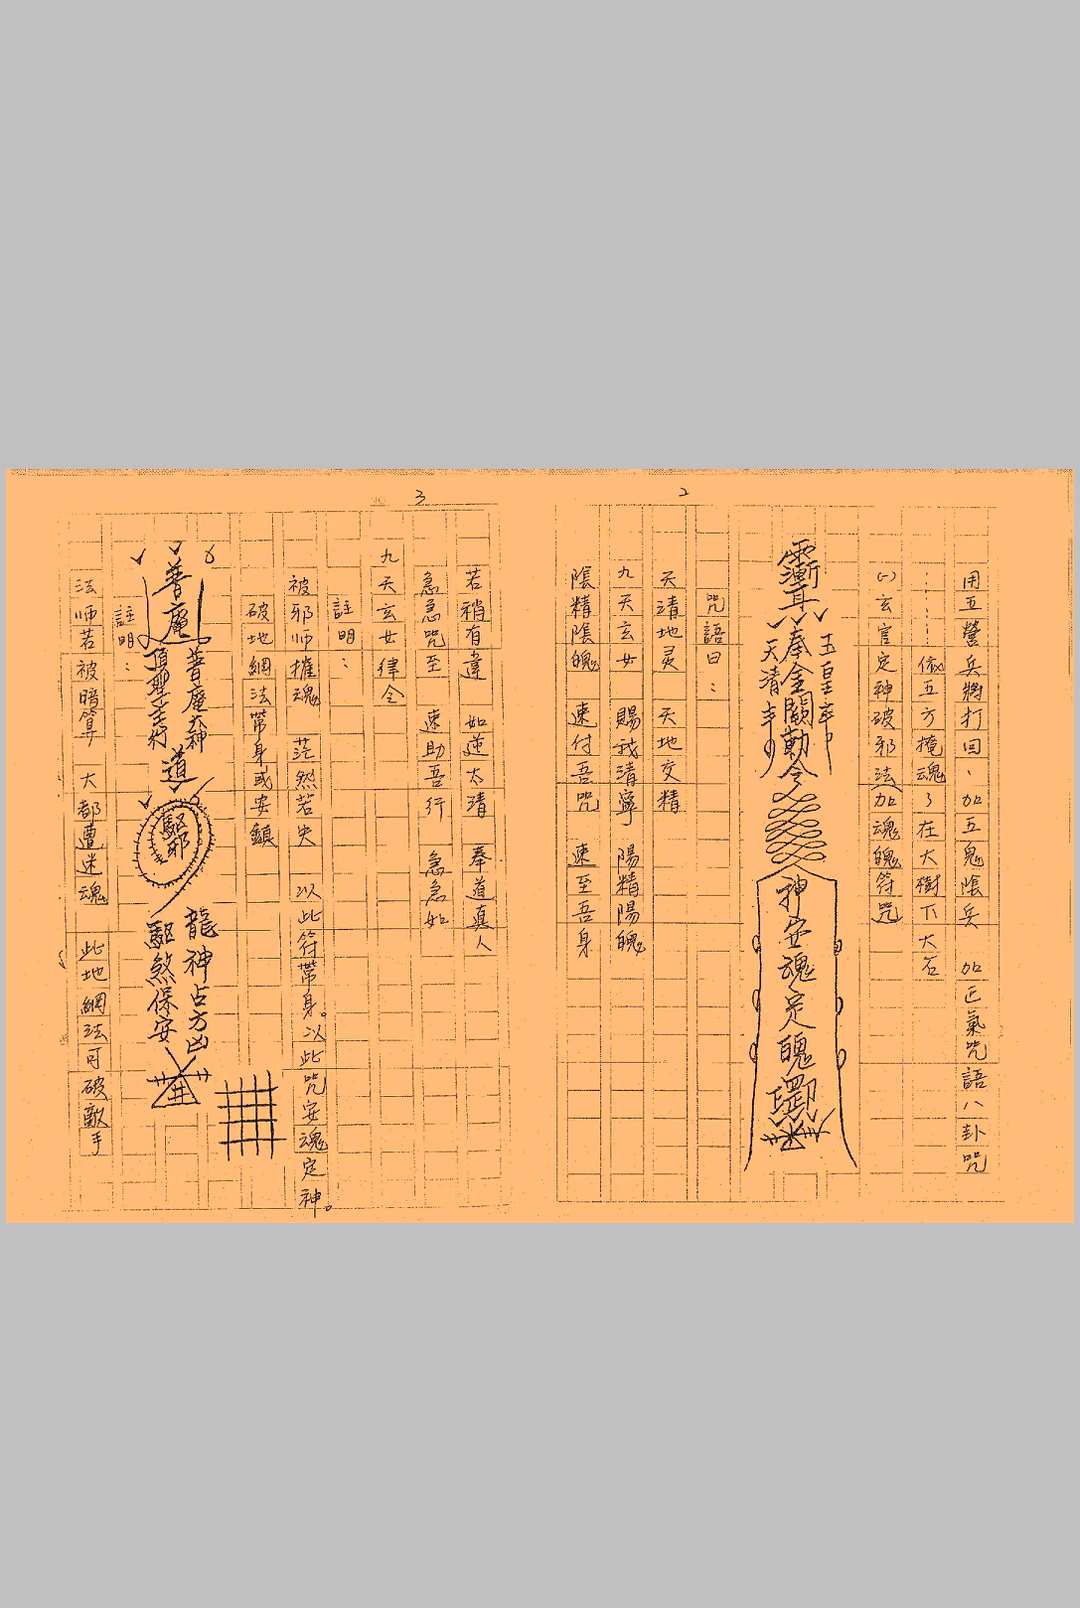 2
用五營兵將打回、加五鬼陰兵 加正氣咒語八卦咒
……依五方掩魂了在大樹下大石
(一)玄官定神破邪法(加魂魄符咒)
玉皇
奉金闕勅令
天清
神安魂定魄
咒語曰：
天清地灵 天地交精
九天玄女 賜我清寧 陽精陽魄
陰精陰魄 速付吾咒 速至吾身
3
若稍有違 如逆太清 奉道真人
急急咒至 速助吾行 急急如
九天玄女律令
註明：
被邪师摧魂 茫然若失 以此符帶身。以此咒安魂定神。
破地綱法帶身或安鎮
普庵
普庵大神
頂聖
道
驅邪
龍神占方凶
驅煞保安
註明：
法师若被暗算 大都遭迷魂 此地綱法可破敵手